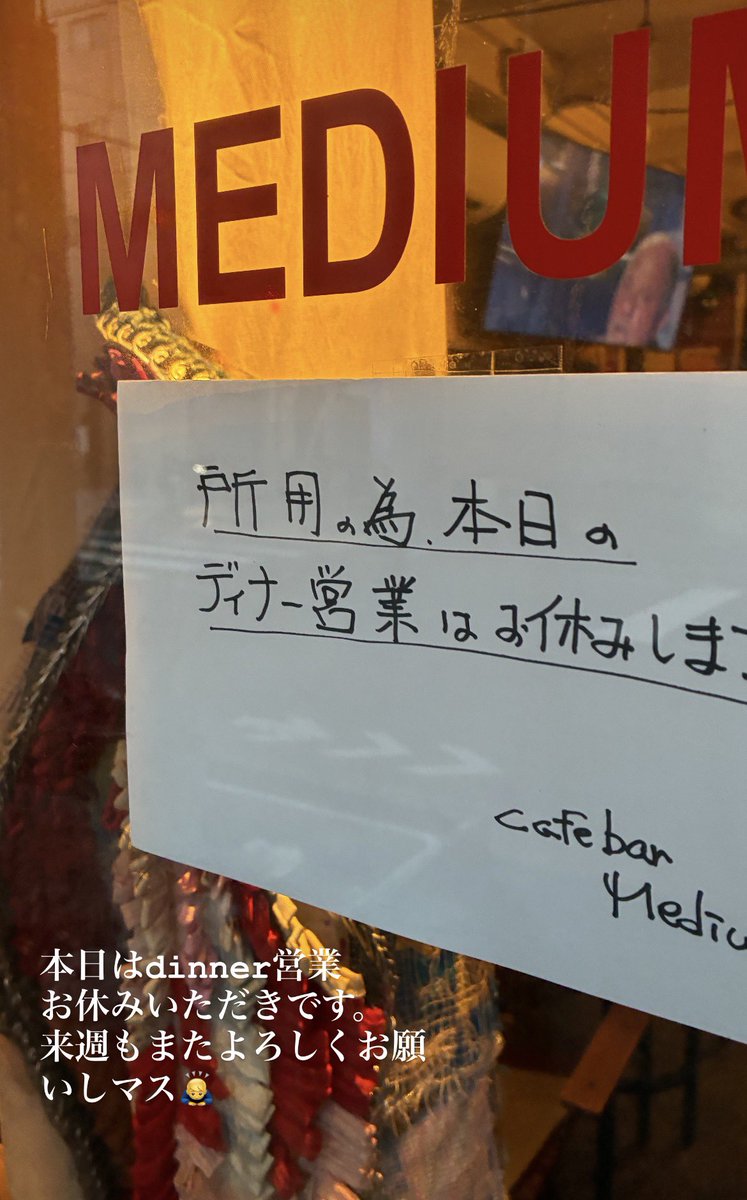 MEDIUM
所用の為、本日の
ディナー営業はお休みします
cafe bar
Mediu
本日はdinner営業
お休みいただきです。
来週もまたよろしくお願
いしマス🙇